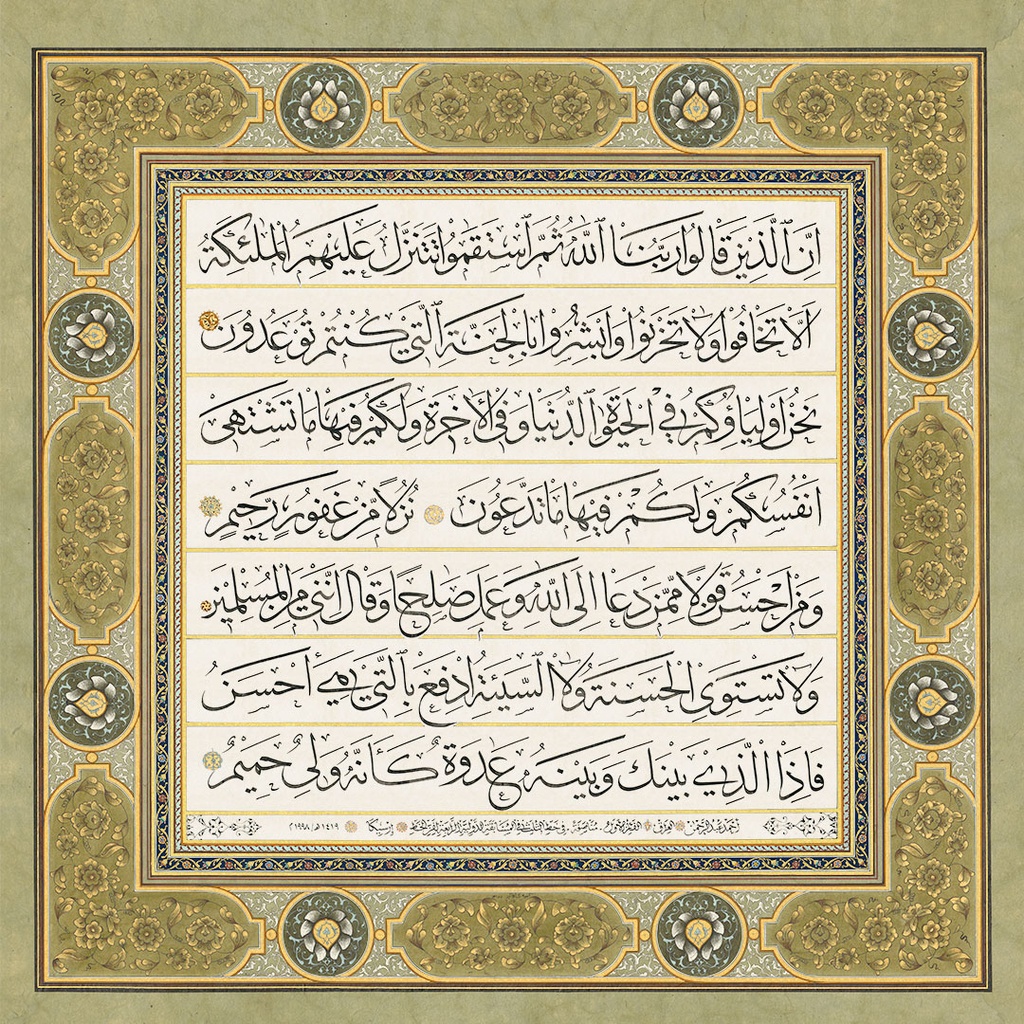 ان الذين قالوا ربنا الله ثم استقموا تتنزل عليهم الملئكة
الا تخافوا ولا تحزنوا وابشروا بالجنة التي كنتم توعدون
نحن اولياؤكم في الحيوة الدنيا وفي الاخرة ولكم فيها ما تشتهي
انفسكم ولكم فيها ما تدعون نزلا من غفور رحيم
ومن احسن قولا ممن دعا الى الله وعمل صلحا وقال انني من المسلمين
ولا تستوي الحسنة ولا السيئة ادفع بالتي هي احسن
فاذا الذي بينك وبينه عدوة كأنه ولي حميم
١٤١٩هـ/١٩٩٨م